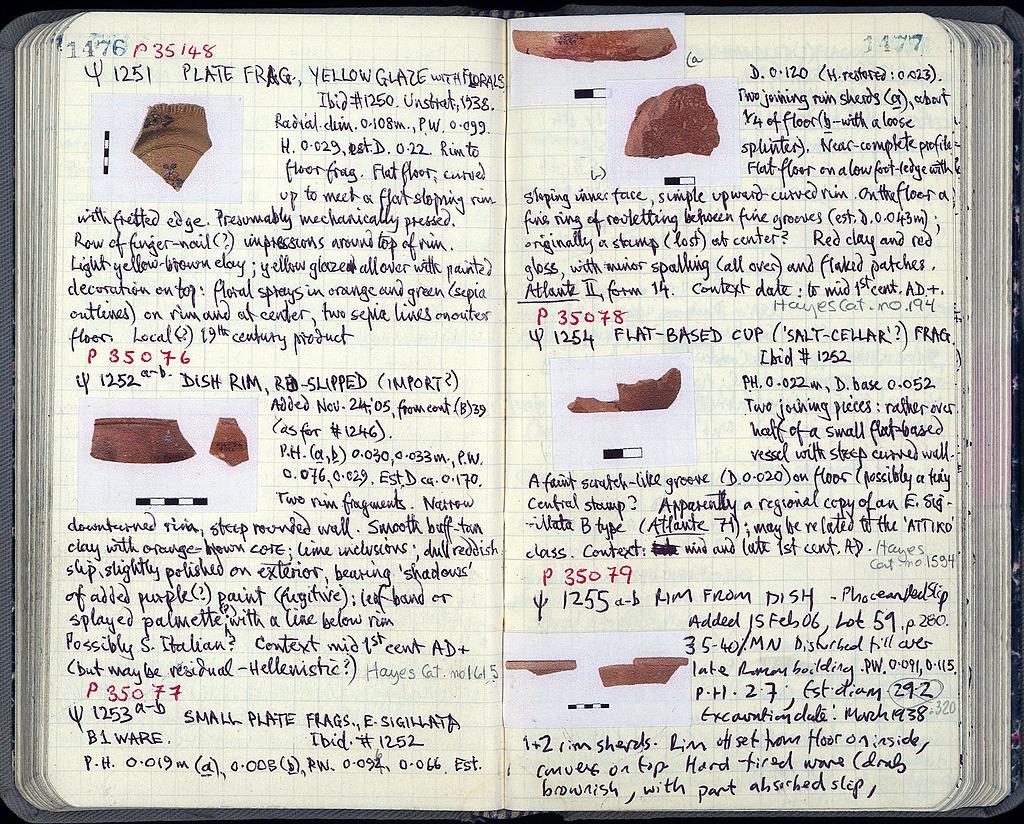 1476 P 35148
Ψ 1251 PLATE FRAG., YELLOW GLAZE WITH FLORALS
Ibid #1250. Unstrat, 1938.
Radial dim. 0.108m., P.W. 0.099.
H. 0.029, est D. 0.22. Rim to
floor frag. Flat floor, curved
up to meet a flat sloping rim
with fretted edge. Presumably mechanically pressed.
Row of finger-nail (?) impressions around top of rim.
Light yellow-brown clay; yellow glazed all over with painted
decoration on top: floral sprays in orange and green (sepia
outlines) on rim and at center, two sepia lines on outer
floor. Local (?) 19th century product
P 35076
Ψ 1252 a-b. DISH RIM, RED-SLIPPED (IMPORT?)
Added Nov. 24,'05, from cont. (B) 39
(as for #1246).
P.H. (a,b) 0.030, 0.033m., P.W.
0.076, 0.029. Est D ca. 0.170.
Two rim fragments Narrow
downturned rim, steep rounded wall. Smooth buff-tan
clay with orange-brown core; lime inclusions; dull reddish
slip, slightly polished on exterior, bearing 'shadows'
of added purple (?) paint (fugitive): leaf-band or
splayed palmette, with a line below rim
Possibly S. Italian? Context mid 1st cent AD+
(but may be residual - Hellenistic?) Hayes Cat. no 1615
P 35077
Ψ 1253 a-b SMALL PLATE FRAGS., E. SIGILLATA
B1 WARE. Ibid. #1252
P.H. 0.019m (a), 0.008 (b), P.W. 0.092, 0.066 Est.
1477
(a
D. 0.120 (H. restored: 0.023).
Two joining rim sherds (a), about
1/4 of floor (b - with a loose
splinter). Near-complete profile
(b)
Flat floor on a low foot-ledge with
sloping inner face, simple upward-curved rim. On the floor a
fine ring of rouletting between fine grooves (est. D. 0.043m);
originally a stamp (lost) at center? Red clay and red
gloss, with minor spalling (all over) and flaked patches.
Atlante II, form 14. Context date: to mid 1st cent. AD+.
Hayes Cat. no. 194
P 35078
Ψ 1254 FLAT-BASED CUP ('SALT-CELLAR'?) FRAG.
Ibid #1252
P.H. 0.022m, D. base 0.052
Two joining pieces: rather over
half of a small flat-based
vessel with steep curved wall.
A faint scratch-like groove (D. 0.020) on floor (possibly a tiny
central stamp? Apparently a regional copy of an E. Sig-
illata B type (Atlante 71); may be related to the 'ATTIKO'
class. Context: mid and late 1st cent. AD. Hayes
Cat. no. 1594
P 35079
Ψ 1255 a-b RIM FROM DISH - Phocean Red Slip
Added 15 Feb 06, Lot 59, p 280.
35-40/MN Disturbed fill over
late Roman building. P.W. 0.091, 0.115
P.H. 2.7; Est diam 29.2
.320
Excavation date: March 1938
1+2 rim sherds. Rim offset from floor on inside,
convex on top. Hard fired ware (drab
brownish, with part absorbed slip,